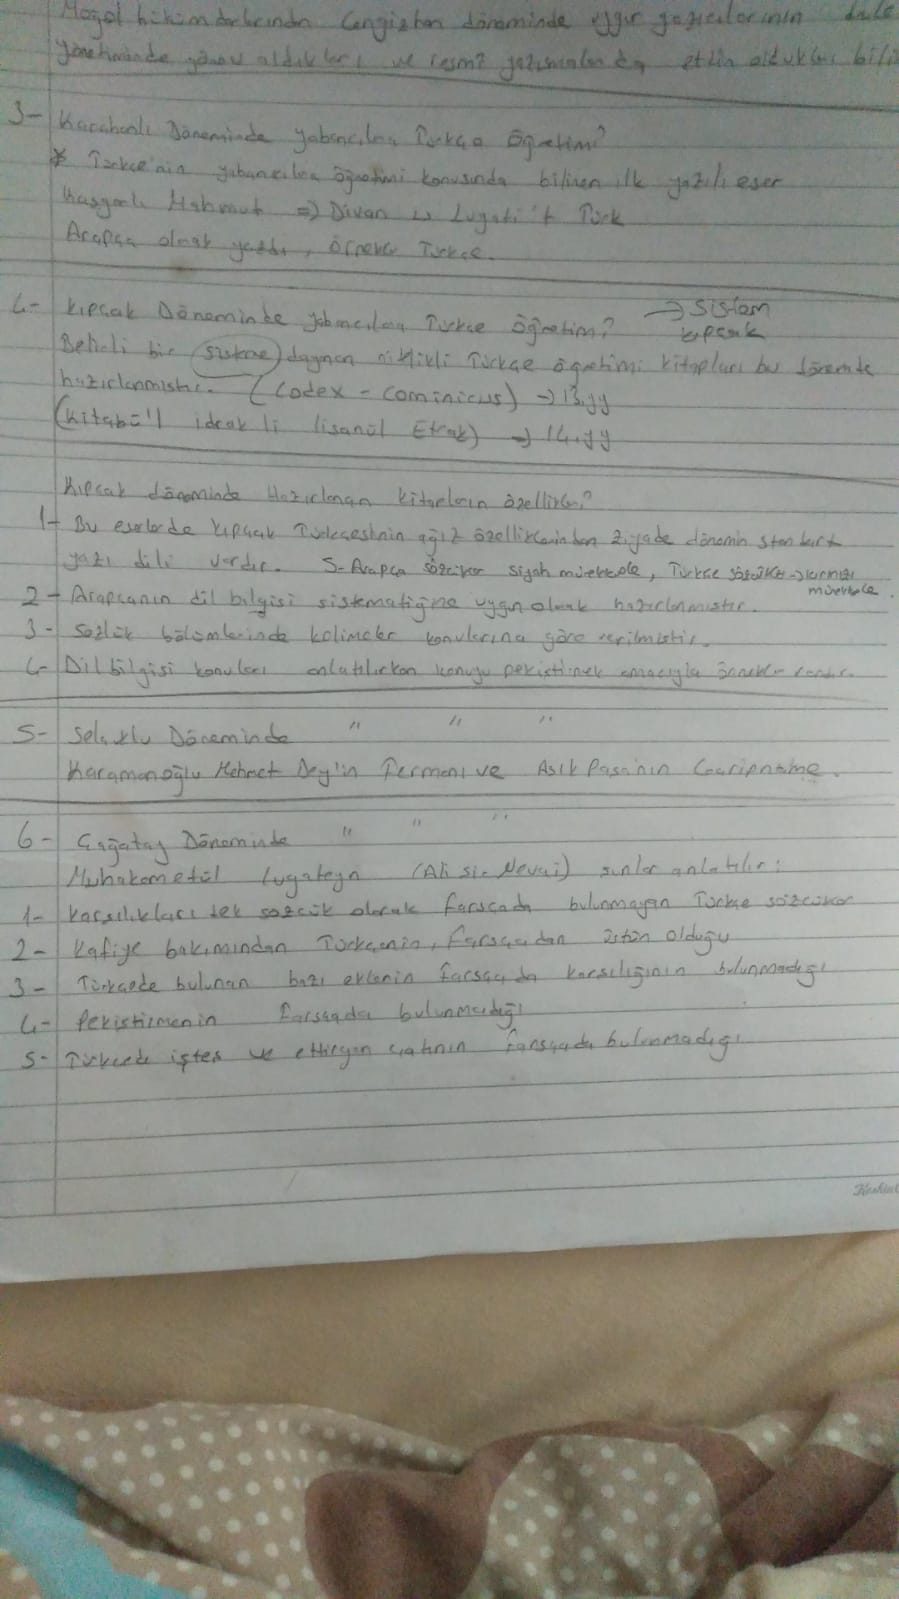 Moğol hükümdarlarından Cengizhan döneminde uygur yazıcılarının
yönetiminde görev aldıkları ve resmi yazışmalarda etkin oldukları
3- Karahanlı Döneminde yabancılara Türkçe Öğretimi?
* Türkçe'nin yabancılara öğretimi konusunda bilinen ilk yazılı eser
Kaşgarlı Mahmut => Divan ü Lugati't Türk
Arapça olarak yazdı, örnekler Türkçe.
4- Kıpçak Döneminde Yabancılara Türkçe Öğretim? → Sistem
kıpçak
Belirli bir sisteme dayanan nitelikli Türkçe öğretimi kitapları bu dönemde
hazırlanmıştır. (Codex - Cominicus) → 13.yy
(Kitabü'l idrak li lisanül Etrak) → 14.yy
Kıpçak döneminde Hazırlanan kitapların özellikleri?
1- Bu eserlerde kıpçak Türkçesinin ağız özelliklerinden ziyade dönemin standart
yazı dili vardır. 5- Arapça sözcükler siyah mürekkeple, Türkçe sözcükler → kırmızı
mürekkeple.
2- Arapçanın dil bilgisi sistematiğine uygun olarak hazırlanmıştır.
3- Sözlük bölümlerinde kelimeler konularına göre verilmiştir.
4- Dil bilgisi konuları anlatılırken konuyu pekiştirmek amacıyla örnekler vardır.
5- Selçuklu Döneminde " " "
Karamanoğlu Mehmet Bey'in Fermanı ve Aşık Paşa'nın Garipname.
6- Çağatay Döneminde " " "
Muhakemetül lugateyn (Ali Şir Nevai) şunlar anlatılır:
1- Karşılıkları tek sözcük olarak Farsçada bulunmayan Türkçe sözcükler
2- Kafiye bakımından Türkçenin, Farsçadan üstün olduğu
3- Türkçede bulunan bazı eklerin farsçada karşılığının bulunmadığı
4- Pekiştirmenin farsçada bulunmadığı
5- Türkçede işteş ve ettirgen çatının farsçada bulunmadığı.